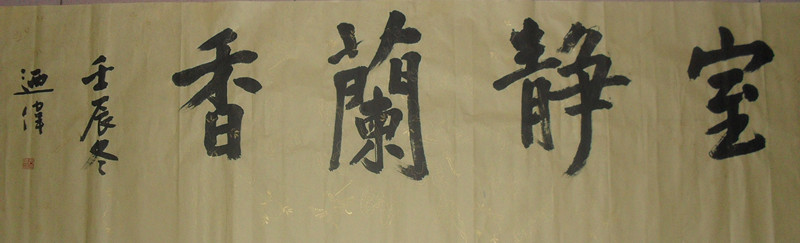 室靜蘭香
壬辰冬
迺偉